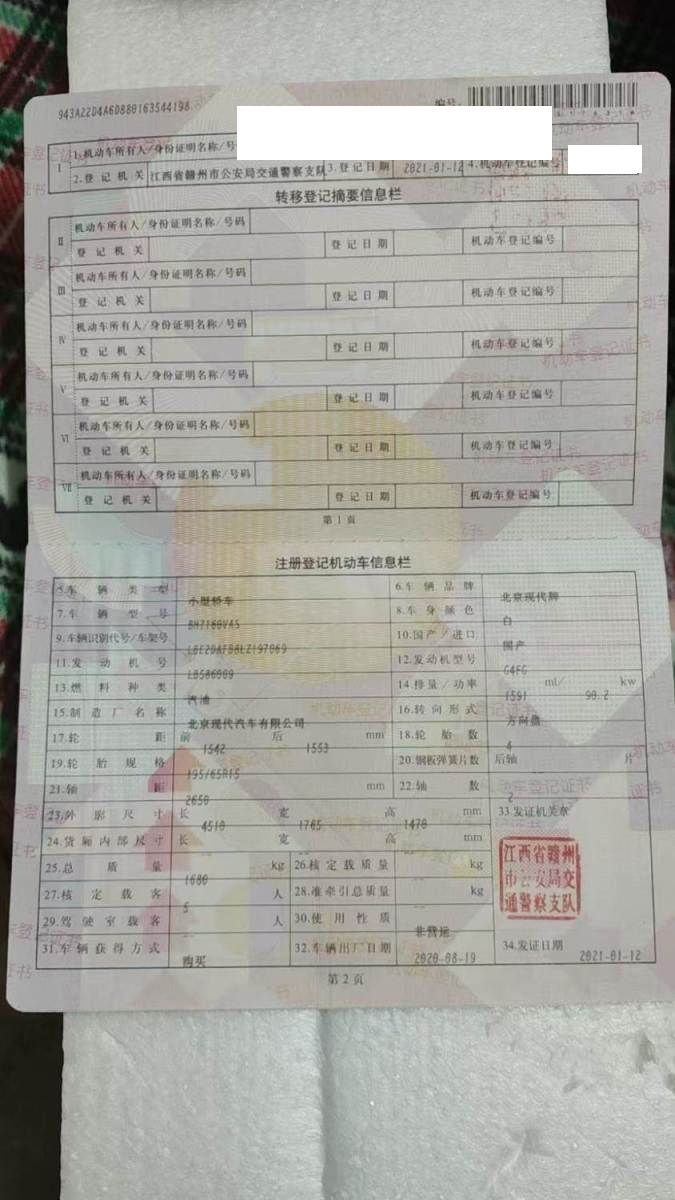 943A22D4A6D880163544198
编号:
I
1.机动车所有人/身份证明名称/号
2.登记机关 江西省赣州市公安局交通警察支队 3.登记日期 2021-01-12 4.机动车登记编号
转移登记摘要信息栏
II
机动车所有人/身份证明名称/号码
登记机关 登记日期 机动车登记编号
III
机动车所有人/身份证明名称/号码
登记机关 登记日期 机动车登记编号
IV
机动车所有人/身份证明名称/号码
登记机关 登记日期 机动车登记编号
V
机动车所有人/身份证明名称/号码
登记机关 登记日期 机动车登记编号
VI
机动车所有人/身份证明名称/号码
登记机关 登记日期 机动车登记编号
VII
机动车所有人/身份证明名称/号码
登记机关 登记日期 机动车登记编号
第1页
注册登记机动车信息栏
5.车辆类型 小型轿车 6.车辆品牌 北京现代牌
7.车辆型号 BH7160VAS 8.车身颜色 白
9.车辆识别代号/车架号 10.国产/进口 国产
11.发动机号 12.发动机型号 G4FG
13.燃料种类 汽油 14.排量/功率 1591 ml/ 90.2 kw
15.制造厂名称 北京现代汽车有限公司 16.转向形式 方向盘
17.轮距 前 1542 后 1553 mm 18.轮胎数 4
19.轮胎规格 195/65R15 20.钢板弹簧片数 后轴 片
21.轴距 2650 mm 22.轴数 2
23.外廓尺寸 长 4510 宽 1765 高 1470 mm 33.发证机关章
24.货厢内部尺寸 长 宽 高 mm
25.总质量 1680 kg 26.核定载质量 -- kg
27.核定载客 5 人 28.准牵引总质量 -- kg
29.驾驶室载客 -- 人 30.使用性质 非营运
31.车辆获得方式 购买 32.车辆出厂日期 2020-08-19 34.发证日期 2021-01-12
江西省赣州
市公安局交
通警察支队
第2页